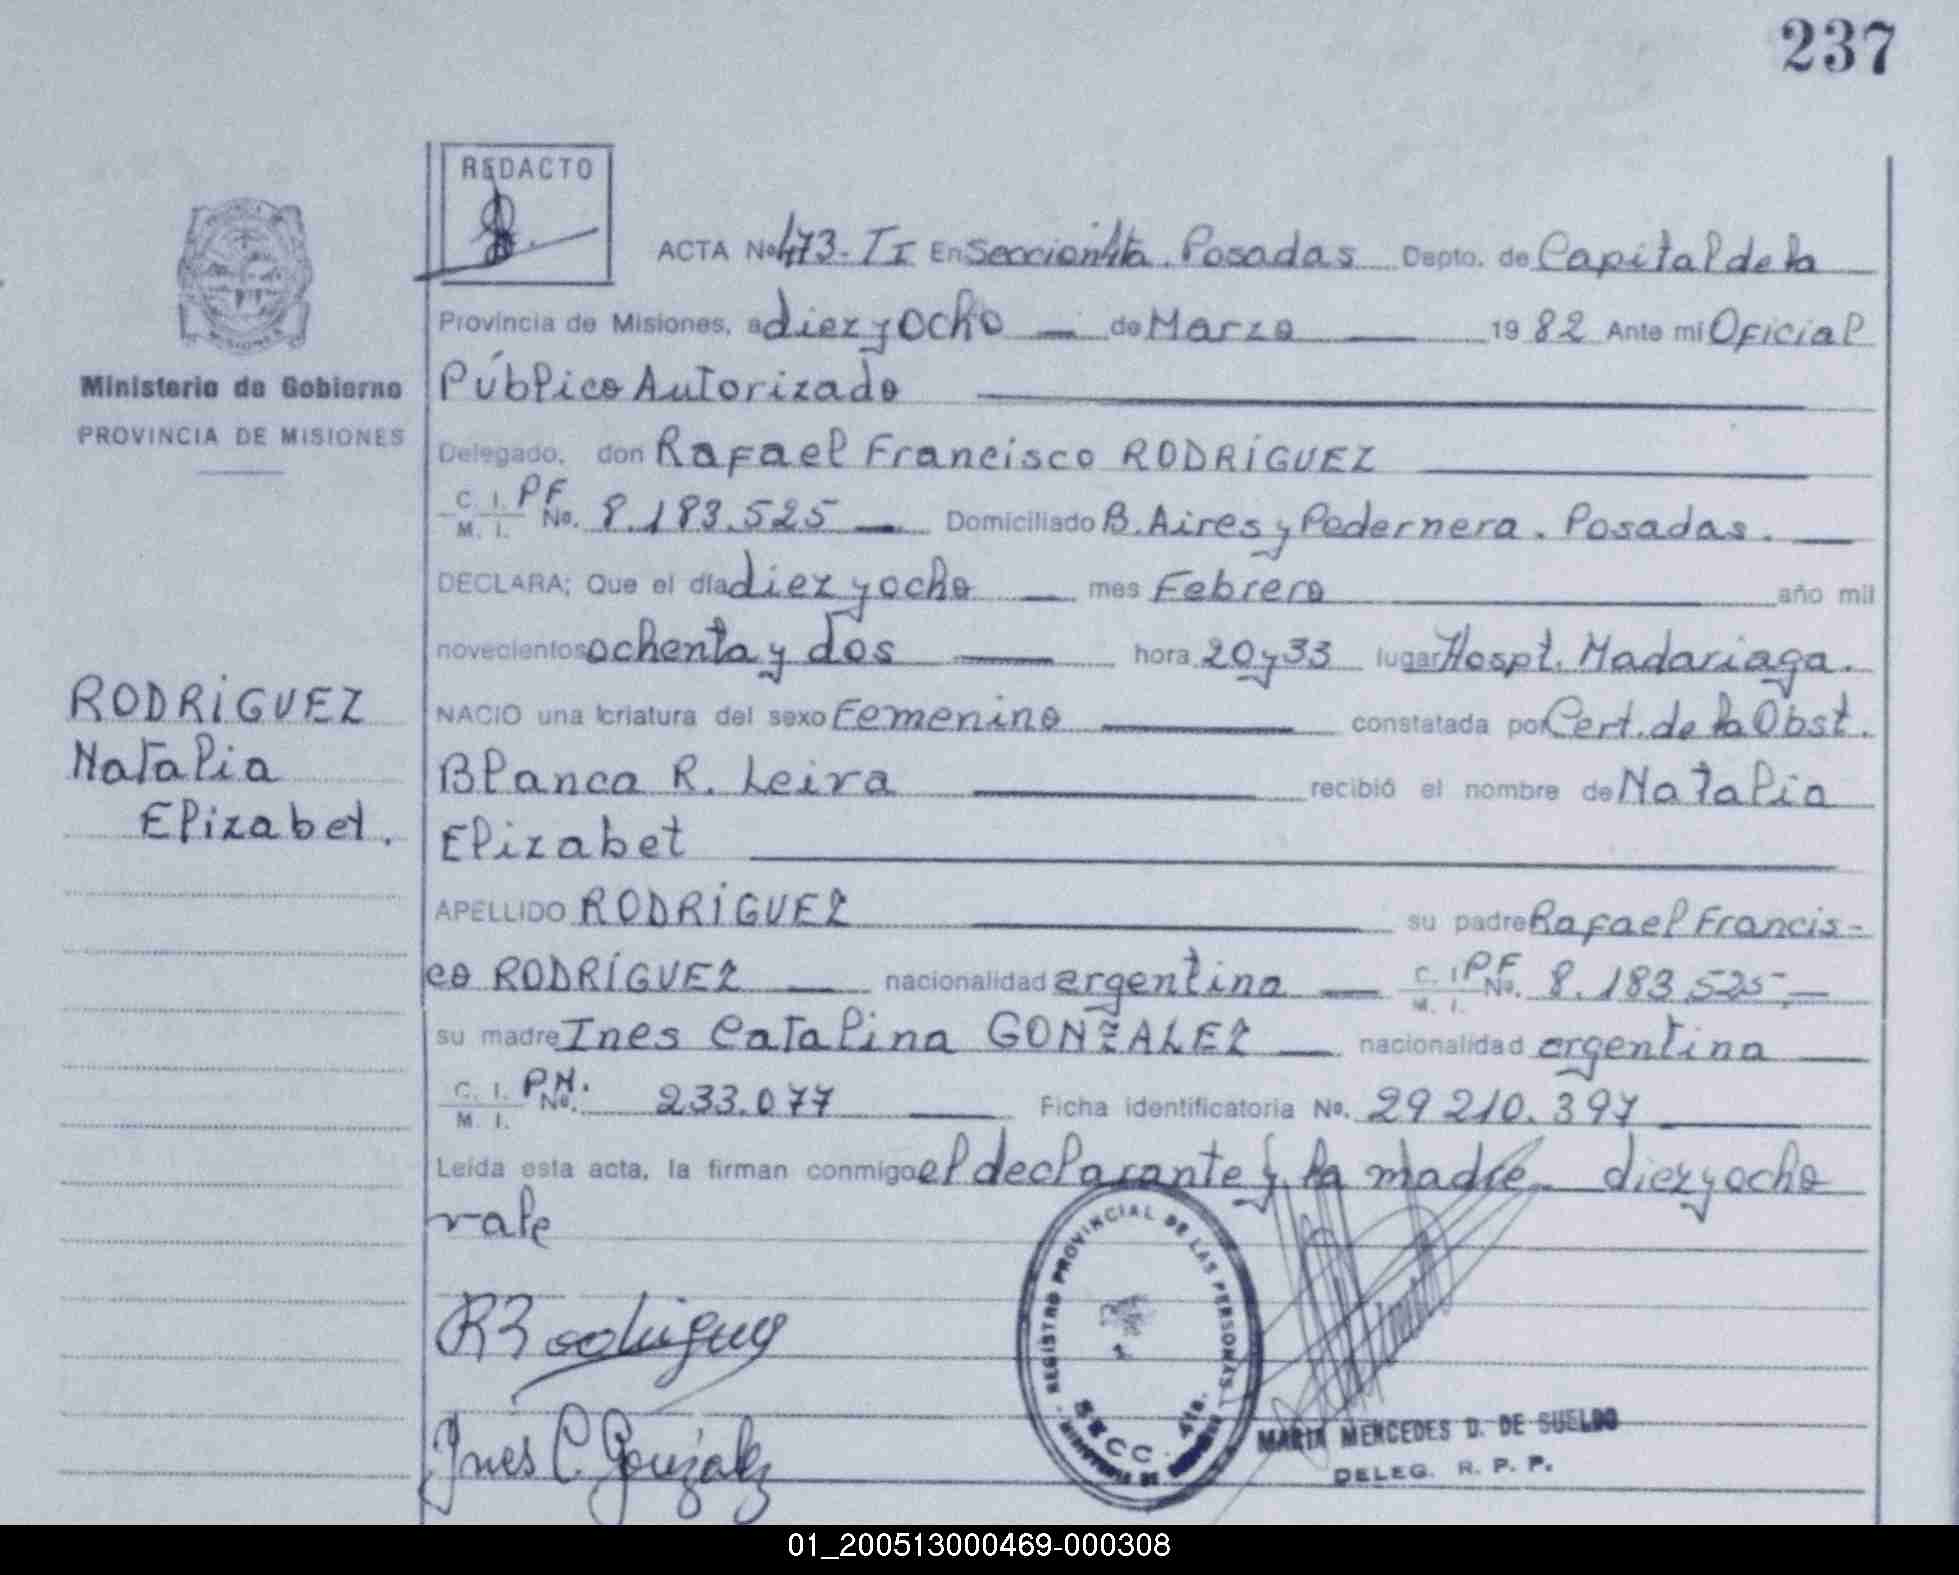 237
REDACTO
ACTA No 473-TI En Seccion 4ta. Posadas Depto. de Capital de la
Provincia de Misiones, a diez y ocho de Marzo 1982 Ante mí Oficial
Ministerio de Gobierno
Público Autorizado
PROVINCIA DE MISIONES
Delegado, don Rafael Francisco RODRÍGUEZ
C. I. PF
M. I. No. 8.183.525 Domiciliado B. Aires y Pedernera. Posadas.
DECLARA; Que el día diez y ocho mes Febrero año mil
novecientos ochenta y dos hora 20 y 33 lugar Hospt. Madariaga.
RODRÍGUEZ
NACIO una criatura del sexo Femenino constatada por Cert. de la Obst.
Natalia
Blanca R. Leiva recibió el nombre de Natalia
Elizabet.
Elizabet
APELLIDO RODRÍGUEZ su padre Rafael Francis-
co RODRÍGUEZ nacionalidad argentina C. I. PF
M. I. No. 8.183.525.-
su madre Ines Catalina GONZALEZ nacionalidad argentina
C. I. PN.
M. I. No. 233.077 Ficha identificatoria No. 29210.397
Leída esta acta, la firman conmigo el declarante y la madre diez y ocho
vale
R Rodriguez
Ines C. Gonzalez
REGISTRO PROVINCIAL DE LAS PERSONAS
SECC. 4ta.
MARIA MERCEDES D. DE SUELDO
DELEG. R. P. P.
01_200513000469-000308